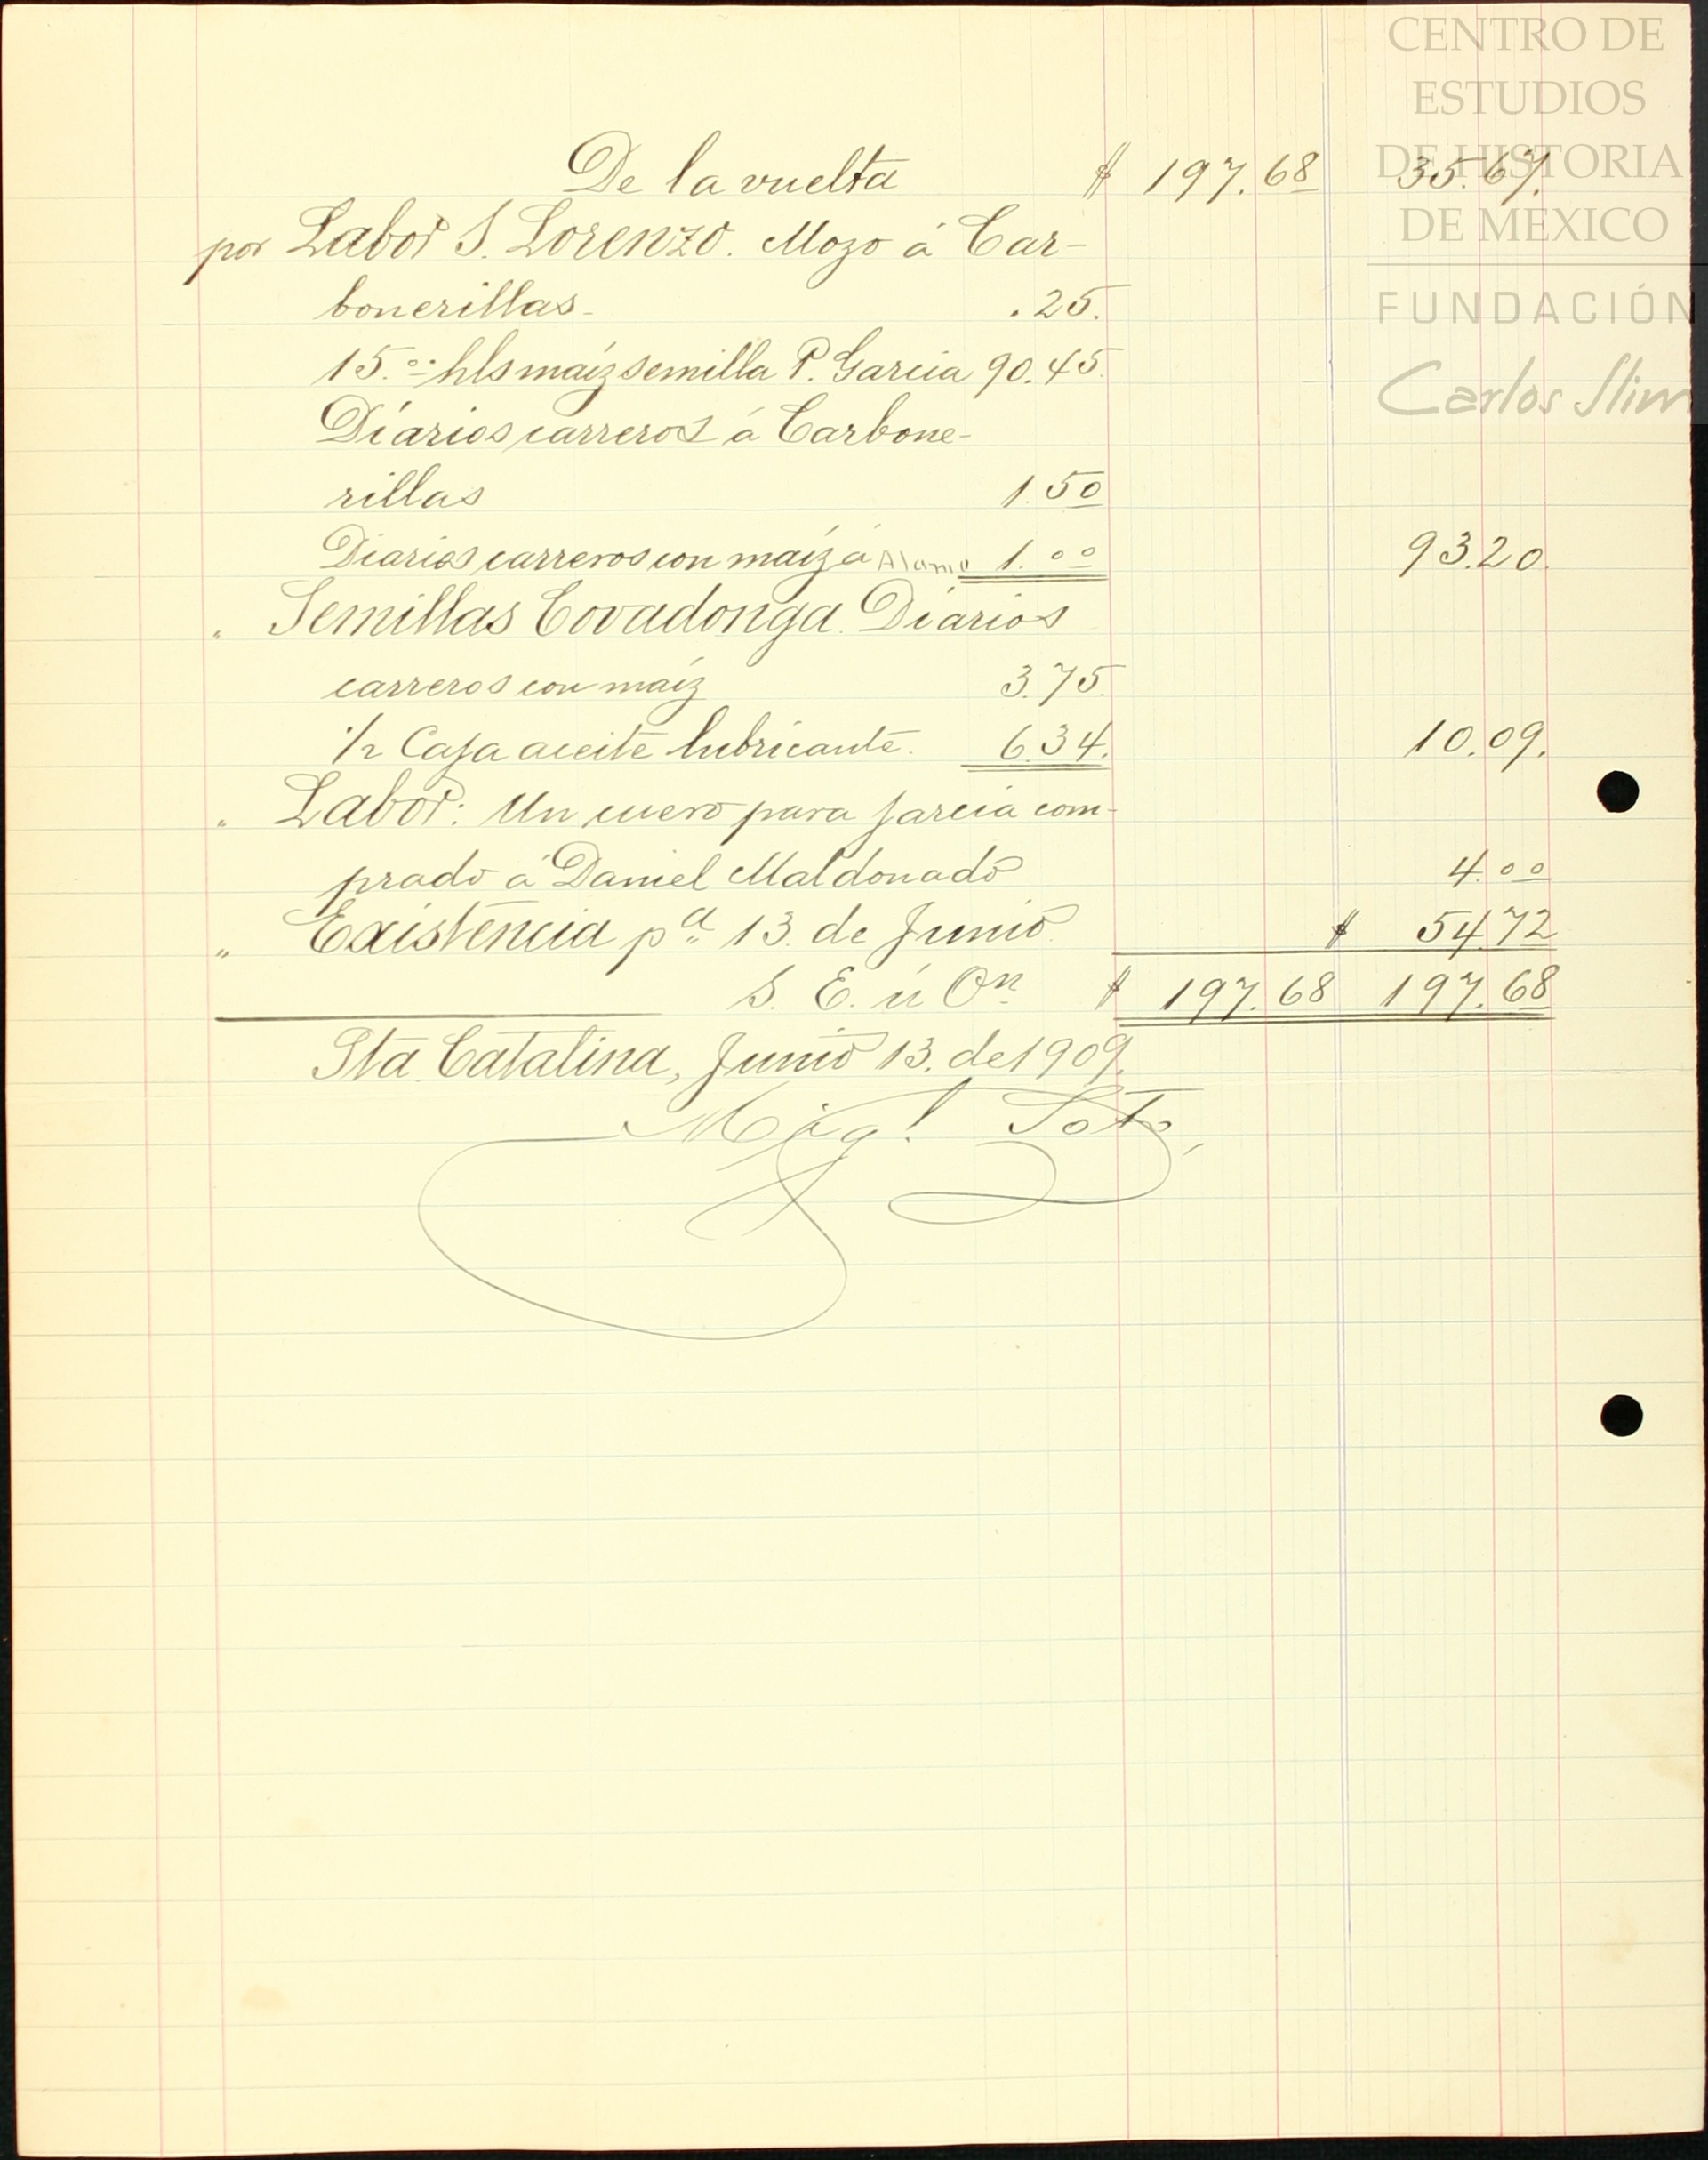 CENTRO DE
ESTUDIOS
DE HISTORIA
DE MEXICO
FUNDACIÓN
Carlos Slim
De la vuelta $ 197.68 35.67.
por Labor S. Lorenzo. Mozo á Car-
bonerillas- .25.
15.00 hls maíz semilla P. Garcia 90.45.
Diarios carreros á Carbone-
rillas 1.50
Diarios carreros con maíz á Alamo 1.00 93.20.
" Semillas Covadonga. Diarios
carreros con maíz 3.75.
1/2 Caja aceite lubricante. 6.34. 10.09.
" Labor: Un cuero para jarcia com-
prado á Daniel Maldonado 4.00
" Existencia pa 13. de Junio. $ 54.72
S. E. ú On $ 197.68 197.68
Sta. Catalina, Junio 13. de 1909.
Migl Soto